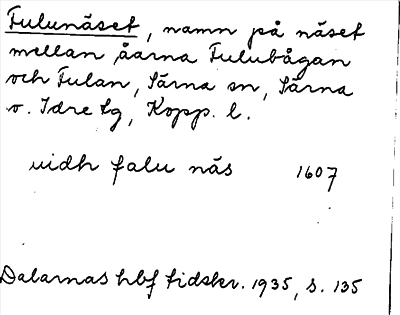 Fulunäset, namn på näset
mellan åarna Fulubågan
och Fulan, Särna sn, Särna
o. Idre tg, Kopp. l.
widh falu näs 1607
Dalarnas hbf tidskr. 1935, s. 135